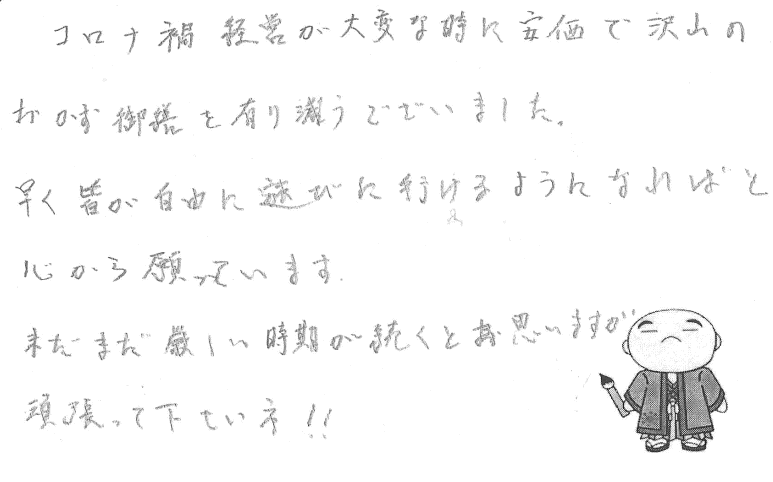 コロナ禍 経営が大変な時に安価で沢山の
おかず御膳を有り難うございました。
早く皆が自由に遊びに行けるようになればと
心から願っています。
まだまだ厳しい時期が続くとお思いますが
頑張って下さいネ!!